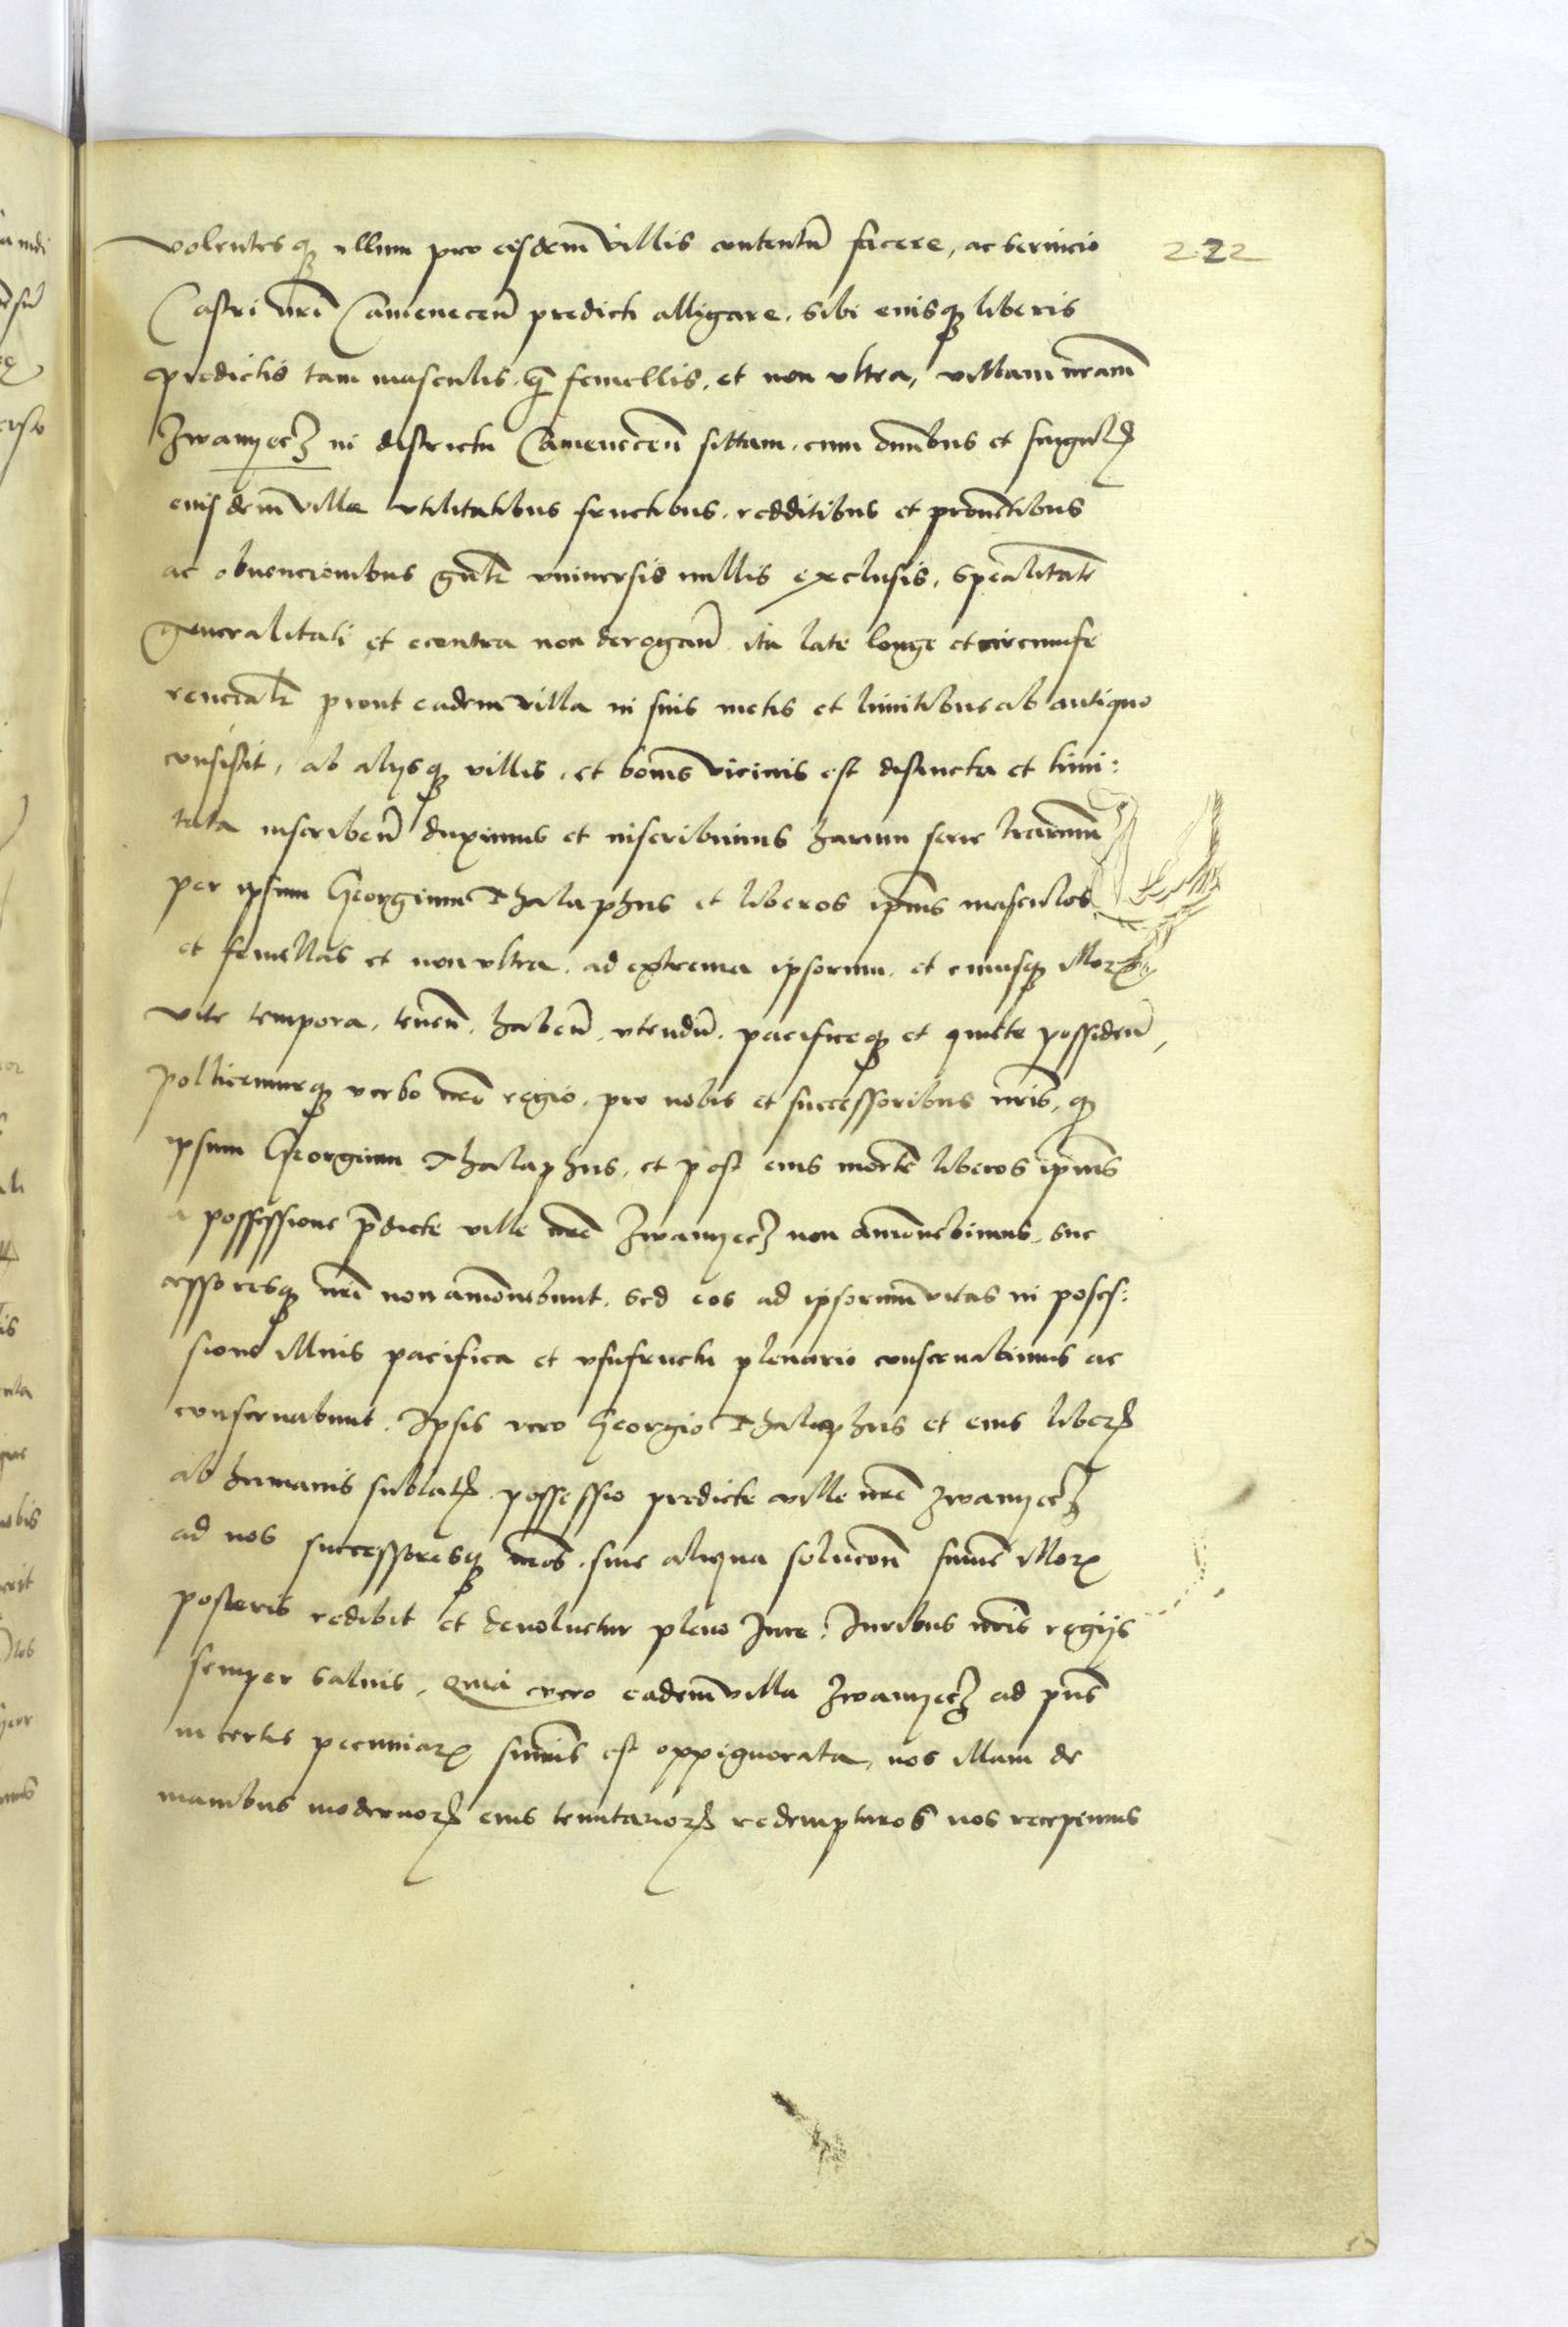 volentesq̃ illum pro eisdem villis contentũ facere, ac servicio
222
Castri nrĩ Camenecen̄ predicti alligare, sibi eiusq̃ liberis
predictis tam masculis q̃ femellis, et non vltra, villam nram̄
Zwanyecz in districtu Camenecen̄ sittam, cum om̄ibus et singulꝭ
eiusdem̄ ville vtilitatibus fructibus, redditibus et provẽtibus
ac obvencionibus gñtr vniversis nullis exclusis, specialitatẽ
generalitati et econtra non derogan̄ ita late longe et circumfe
renciatr prout eadem villa in suis metis et limitibus ab antiquo
consistit, ab alysq̃ villis, et bonis vicinis est distincta et limi:
tata inscriben̄ duximus et inscribimus harum serie lrarum̄
per ipsum Georgium Thalaphus et liberos ipiũs masculos
et femellas et non vltra, ad extrema ipsorum, et cuiusq̃ illorꝝ
vite tempora, tenen̄, haben̄, vtendũ, pacificeq̃ et quiete possiden̄,
pollicemurq̃ verbo nrõ regio, pro nobis et successoribus nrĩs, q̃
ipsum Georgium Thalaphus, et post eius mortẽ liberos ipiũs
a possessione p̄dicte ville nrẽ Zwanyecz non amovebimus, suc
cessoresq̃ nrĩ non amovebunt, sed eos ad ipsorum̄ vitas in poses:
sione illius pacifica et vsufructu plenario conservabimus ac
conservabunt. Ipsis vero Georgio Thalaphus et eius liberꝭ
ab humanis sublatꝭ possessio predicte ville nrẽ Zwanyecz
ad nos successoresq̃ nrõs, sine aliqua solucon̄ sum̄e illorꝝ
posteris redibit et devoluetur pleno Iure. Iuribus nrĩs regijs
semper salvis, Quia vero eadem̄ villa Zwanyecz ad pñs
in certis pecuniarꝝ sum̄is est oppignorata, nos illam de
manibus modernorꝝ eius tenutariorꝝ redempturos nos recepimus